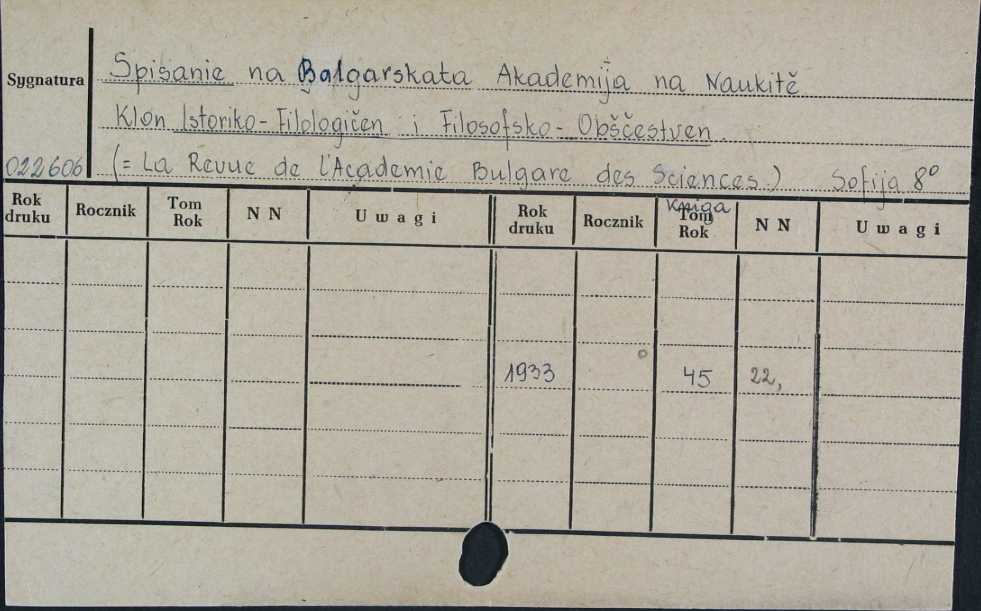 Spisanie na Bałgarskata Akademija na Naukitě
Sygnatura
Klon Istoriko-Filologičen i Filosofsko-Obščestven
022606 (= La Revue de l'Academie Bulgare des Sciences) Sofija 8°
Rok druku Rocznik Tom Rok N N Uwagi Rok druku Rocznik Kniga Tom Rok N N Uwagi
1933 45 22,